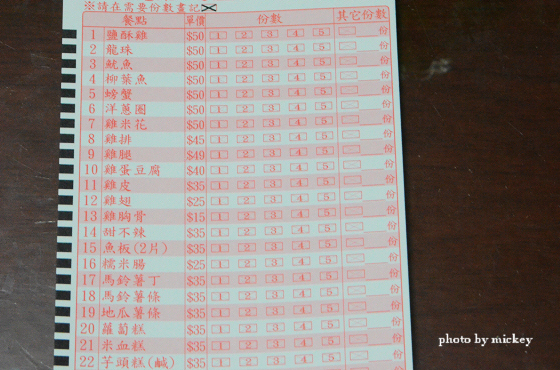 ※請在需要份數畫記
餐點 單價 份數 其它份數
1 鹽酥雞 $50 1 2 3 4 5 份
2 龍珠 $50 1 2 3 4 5 份
3 魷魚 $50 1 2 3 4 5 份
4 柳葉魚 $50 1 2 3 4 5 份
5 螃蟹 $50 1 2 3 4 5 份
6 洋蔥圈 $50 1 2 3 4 5 份
7 雞米花 $50 1 2 3 4 5 份
8 雞排 $45 1 2 3 4 5 份
9 雞腿 $49 1 2 3 4 5 份
10 雞蛋豆腐 $40 1 2 3 4 5 份
11 雞皮 $35 1 2 3 4 5 份
12 雞翅 $25 1 2 3 4 5 份
13 雞胸骨 $15 1 2 3 4 5 份
14 甜不辣 $35 1 2 3 4 5 份
15 魚板(2片) $35 1 2 3 4 5 份
16 糯米腸 $25 1 2 3 4 5 份
17 馬鈴薯丁 $35 1 2 3 4 5 份
18 馬鈴薯條 $35 1 2 3 4 5 份
19 地瓜薯條 $35 1 2 3 4 5 份
20 蘿蔔糕 $35 1 2 3 4 5 份
21 米血糕 $35 1 2 3 4 5 份
22 芋頭糕(鹹) $35 1 2 3 4 5 份
photo by mickey